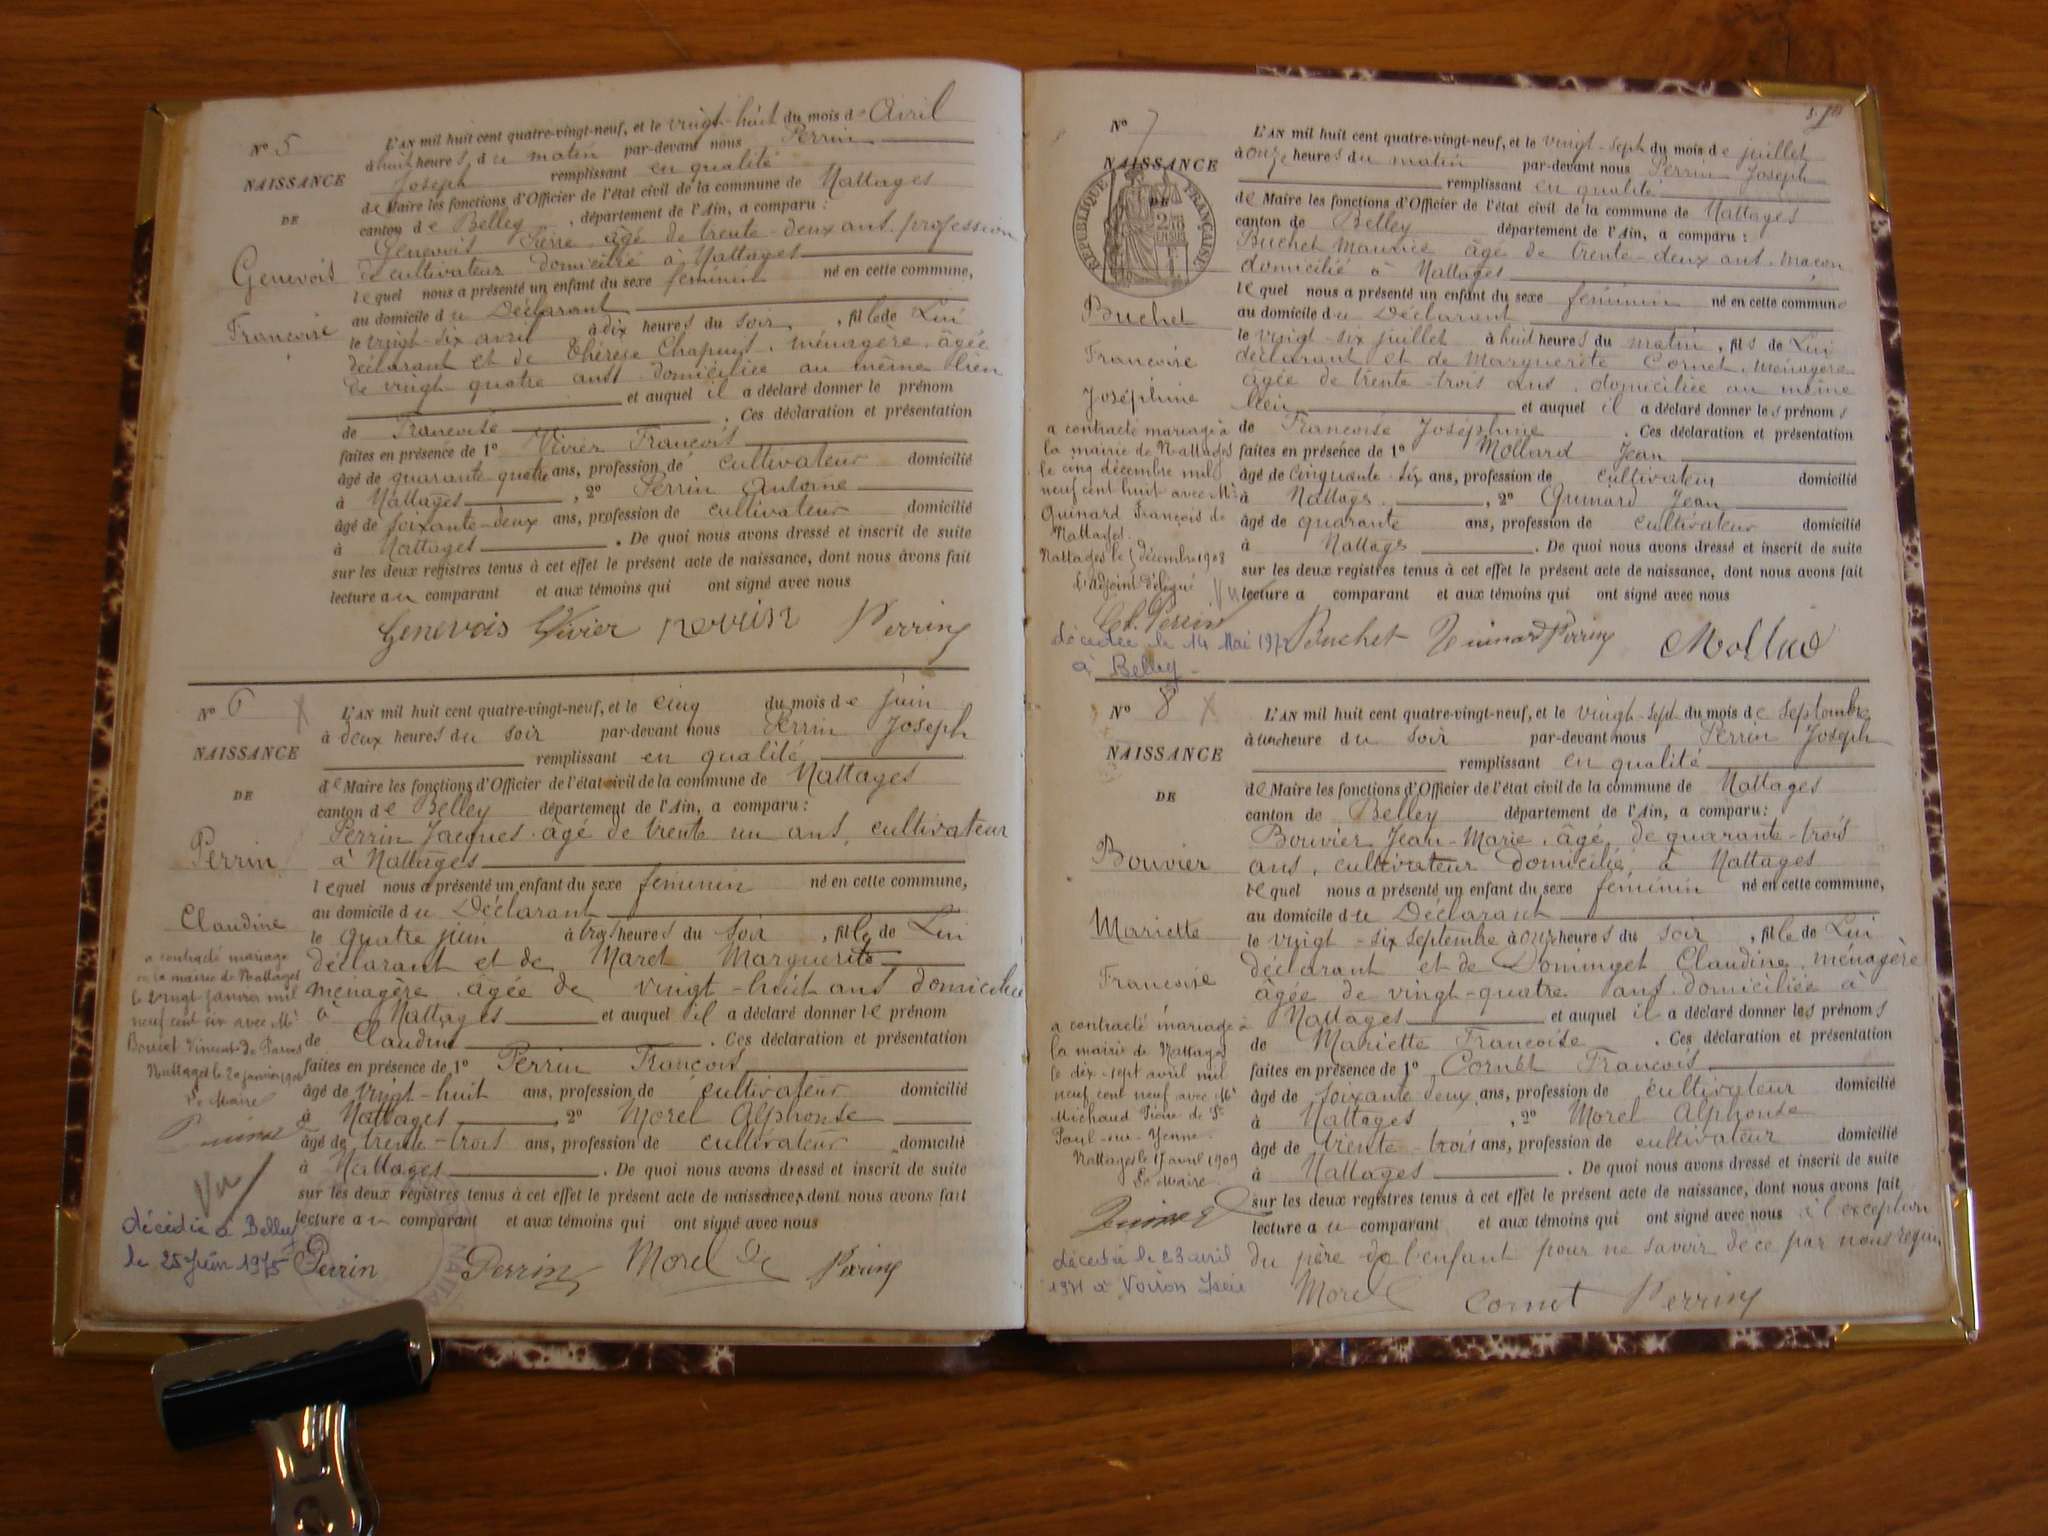 N° 5
NAISSANCE
DE
Genevois
Francoise
L'AN mil huit cent quatre-vingt-neuf, et le vingt-huit du mois d'Avril
à huit heures du matin par-devant nous Perrin
Joseph remplissant en qualité
de Maire les fonctions d'Officier de l'état civil de la commune de Nattages
canton de Belley, département de l'Ain, a comparu :
Genevois Pierre, âgé de trente-deux ans, profession
de cultivateur domicilié à Nattages
lequel nous a présenté un enfant du sexe féminin né en cette commune,
au domicile du Déclarant
le vingt-six avril à dix heures du soir, fille de Lui
déclarant et de Thérèse Chapuis, ménagère, âgée
de vingt quatre ans, domiciliée au même lieu
et auquel il a déclaré donner le prénom
de Francoise. Ces déclaration et présentation
faites en présence de 1° Vivier Francois
âgé de quarante quatre ans, profession de cultivateur domicilié
à Nattages, 2° Perrin Antoine
âgé de soixante-deux ans, profession de cultivateur domicilié
à Nattages. De quoi nous avons dressé et inscrit de suite
sur les deux registres tenus à cet effet le présent acte de naissance, dont nous avons fait
lecture au comparant et aux témoins qui ont signé avec nous
Genevois Vivier perrin Perrin
N° 6
NAISSANCE
DE
Perrin
Claudine
a contracté mariage
à la mairie de Nattages
le vingt janvier mil
neuf cent six avec Mr
Vincent de Parves
Nattages le 20 janvier 1906
Le Maire
Vu
décédée à Belley
le 25 Juin 1975
L'AN mil huit cent quatre-vingt-neuf, et le cinq du mois de juin
à deux heures du soir par-devant nous Perrin Joseph
remplissant en qualité
de Maire les fonctions d'Officier de l'état civil de la commune de Nattages
canton de Belley département de l'Ain, a comparu :
Perrin Jacques âgé de trente un ans, cultivateur
à Nattages
lequel nous a présenté un enfant du sexe féminin né en cette commune,
au domicile du Déclarant
le quatre juin à trois heures du soir, fille de Lui
déclarant et de Maret Marguerite
ménagère âgée de vingt-huit ans domiciliée
à Nattages et auquel il a déclaré donner le prénom
de Claudine. Ces déclaration et présentation
faites en présence de 1° Perrin Francois
âgé de vingt-huit ans, profession de cultivateur domicilié
à Nattages, 2° Morel Alphonse
âgé de trente-trois ans, profession de cultivateur domicilié
à Nattages. De quoi nous avons dressé et inscrit de suite
sur les deux registres tenus à cet effet le présent acte de naissance, dont nous avons fait
lecture au comparant et aux témoins qui ont signé avec nous
Perrin Perrin Morel Perrin
N° 7
NAISSANCE
DE
RÉPUBLIQUE FRANÇAISE
Buchet
Francoise
Joséphine
a contracté mariage à
la mairie de Nattages
le cinq décembre mil
neuf cent huit avec Mr
Guinard François de
Nattages.
Nattages le 5 décembre 1908
L'adjoint délégué
Perrin
Vu
décédée le 14 Mai 197
à Belley
L'AN mil huit cent quatre-vingt-neuf, et le vingt-sept du mois de juillet
à onze heures du matin par-devant nous Perrin Joseph
remplissant en qualité
de Maire les fonctions d'Officier de l'état civil de la commune de Nattages
canton de Belley département de l'Ain, a comparu :
Buchet Maurice âgé de trente-deux ans, maçon
domicilié à Nattages
lequel nous a présenté un enfant du sexe féminin né en cette commune
au domicile du Déclarant
le vingt-six juillet à huit heures du matin, fils de Lui
déclarant et de Marguerite Cornet, ménagère
âgée de trente-trois ans, domiciliée au même
lieu et auquel il a déclaré donner les prénoms
de Francoise Joséphine. Ces déclaration et présentation
faites en présence de 1° Mollard Jean
âgé de cinquante-six ans, profession de cultivateur domicilié
à Nattages, 2° Guinard Jean
âgé de quarante ans, profession de cultivateur domicilié
à Nattages. De quoi nous avons dressé et inscrit de suite
sur les deux registres tenus à cet effet le présent acte de naissance, dont nous avons fait
lecture a comparant et aux témoins qui ont signé avec nous
Buchet Guinard Perrin Mollard
N° 8
NAISSANCE
DE
Bouvier
Mariette
Francoise
a contracté mariage à
la mairie de Nattages
le dix-sept avril mil
neuf cent neuf avec Mr
Michaud Pierre de St
Paul-sur-Yenne.
Nattages le 17 avril 1909
Le Maire.
décédée le 23 avril
1971 à Voiron Isère
L'AN mil huit cent quatre-vingt-neuf, et le vingt-sept du mois de septembre
à une heure du soir par-devant nous Perrin Joseph
remplissant en qualité
de Maire les fonctions d'Officier de l'état civil de la commune de Nattages
canton de Belley département de l'Ain, a comparu :
Bouvier Jean-Marie, âgé de quarante-trois
ans, cultivateur domicilié à Nattages
lequel nous a présenté un enfant du sexe féminin né en cette commune,
au domicile du Déclarant
le vingt-six septembre à onze heures du soir, fille de Lui
déclarant et de Dominget Claudine, ménagère
âgée de vingt-quatre ans domiciliée à
Nattages et auquel il a déclaré donner les prénoms
de Mariette Francoise. Ces déclaration et présentation
faites en présence de 1° Cornet Francois
âgé de soixante deux ans, profession de cultivateur domicilié
à Nattages, 2° Morel Alphonse
âgé de trente-trois ans, profession de cultivateur domicilié
à Nattages. De quoi nous avons dressé et inscrit de suite
sur les deux registres tenus à cet effet le présent acte de naissance, dont nous avons fait
lecture au comparant et aux témoins qui ont signé avec nous à l'exception
du père de l'enfant pour ne savoir de ce par nous requis
Morel Cornet Perrin